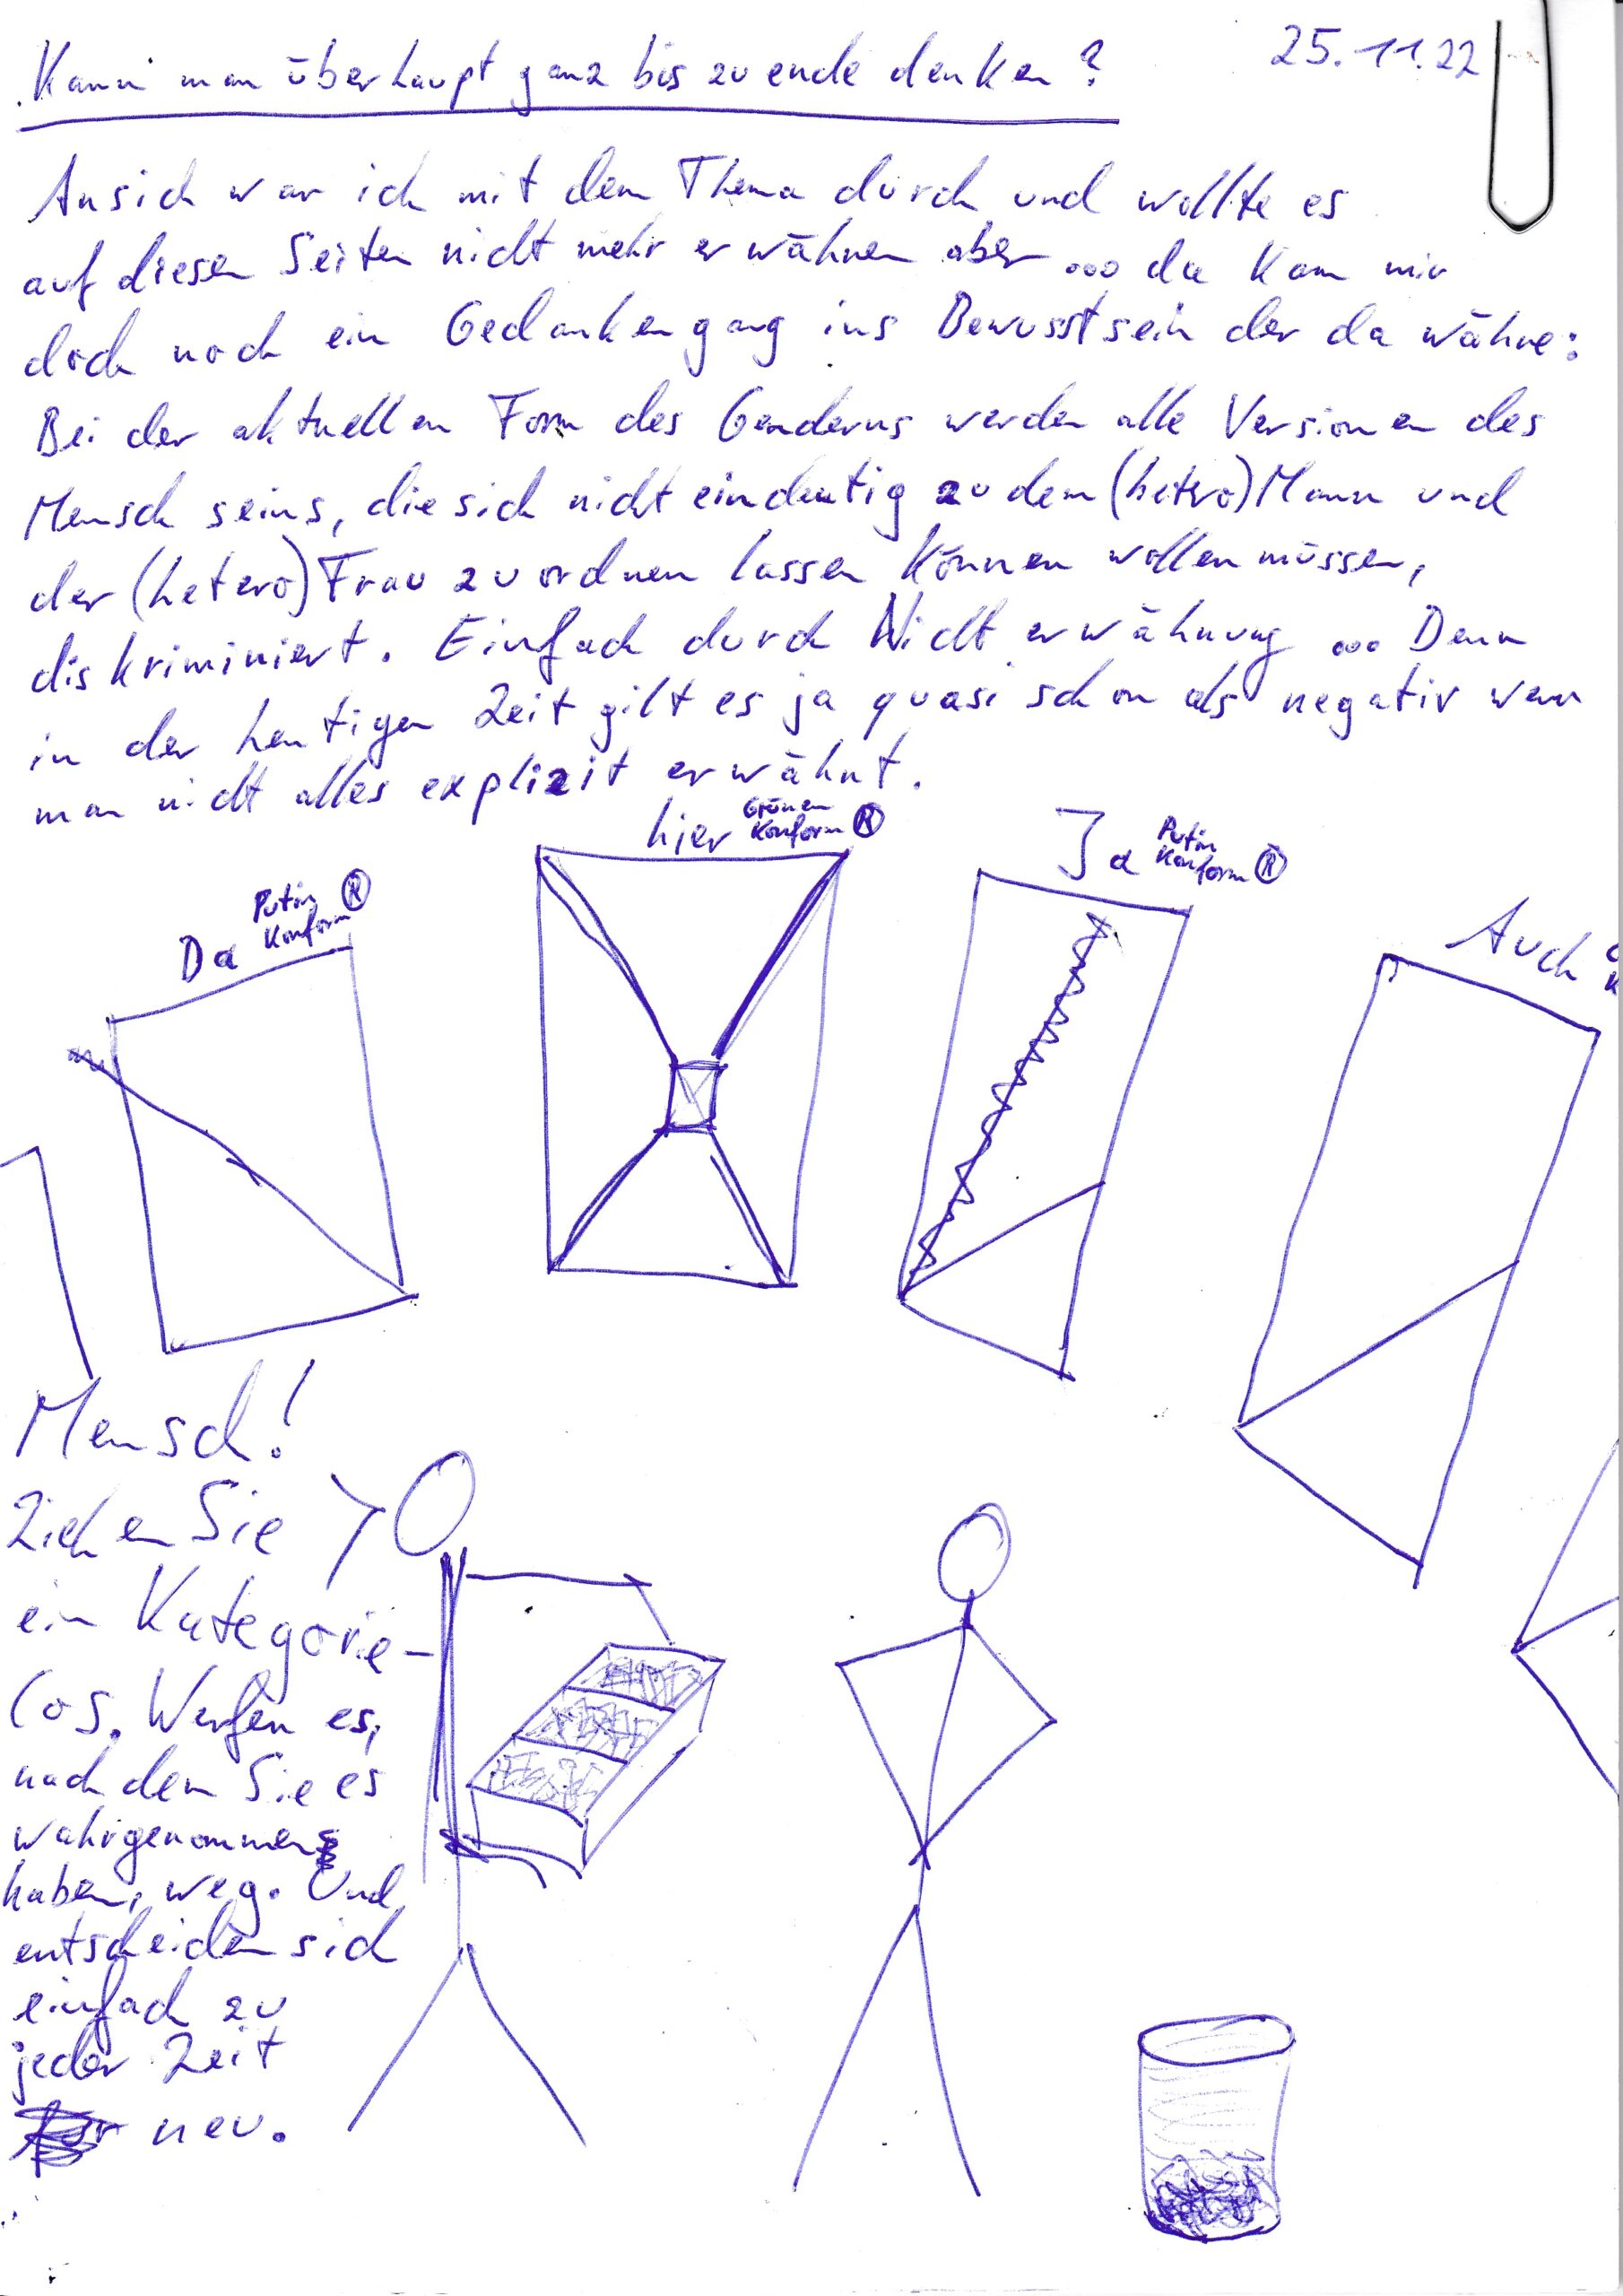 Kann man überhaupt ganz bis zu ende denken?
25.11.22
Ansich war ich mit dem Thema durch und wollte es
auf diesen Seiten nicht mehr erwähnen aber ... da kam mir
doch noch ein Gedankengang ins Bewusstsein der da währe:
Bei der aktuellen Form des Genderns werden alle Versionen des
Mensch seins, die sich nicht eindeutig zu dem (hetero) Mann und
der (hetero) Frau zuordnen lassen können wollen müssen,
diskriminiert. Einfach durch Nichterwähnung ... Denn
in der heutigen Zeit gilt es ja quasi schon als negativ wenn
man nicht alles explizit erwähnt.
Da Putin Konform ®
hier Grünen Konform ®
Ja Putin Konform ®
Auch
Mensch!
Ziehen Sie
ein Kategorie-
los. Werfen es,
nach dem Sie es
wahrgenommen
haben, weg. Und
entscheiden sich
einfach zu
jeder Zeit
neu.